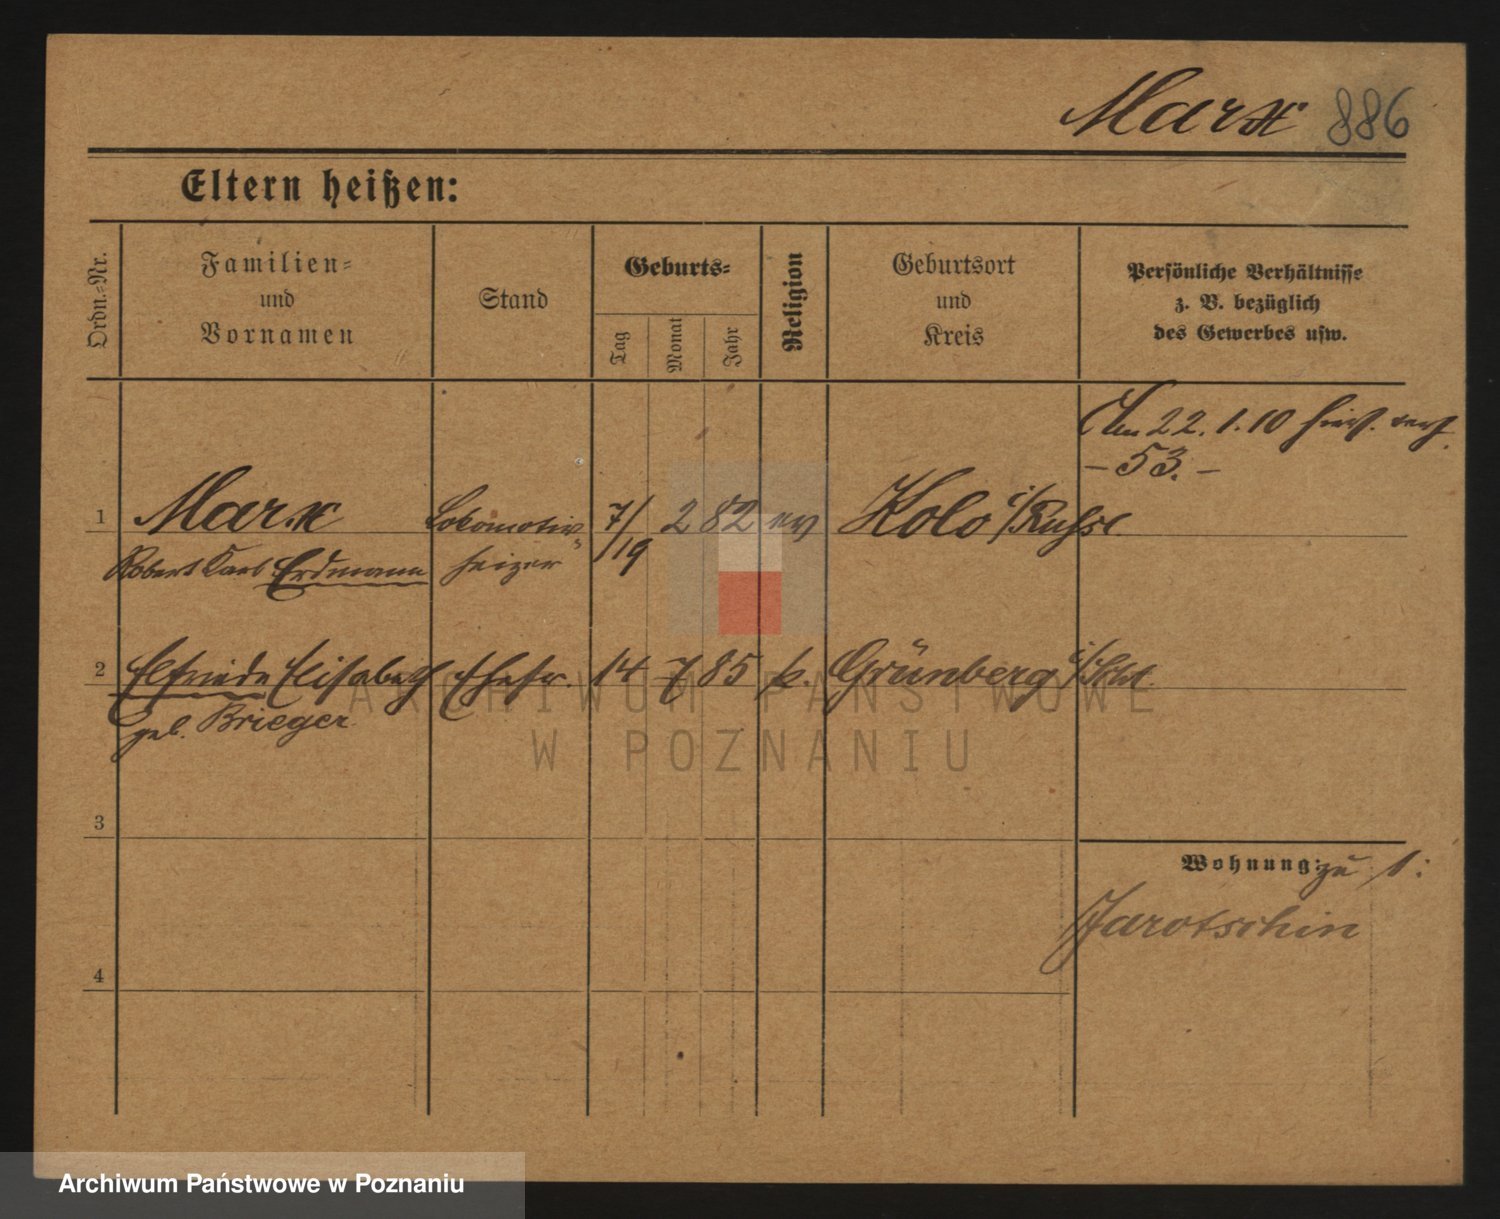 Marx 886
Eltern heißen:
Ordn.-Nr.
Familien-
und
Vornamen
Stand
Geburts-
Tag
Monat
Jahr
Religion
Geburtsort
und
Kreis
Persönliche Verhältnisse
z. B. bezüglich
des Gewerbes usw.
Am 22.1.10 hier. verh.
- 53. -
1 Marx Lokomotiv- 7/19 2 82 ev Kolo i/Russl.
Robert Karl Erdmann heizer
2 Elfriede Elisabeth Ehefr. 14 7 85 k. Grünberg i/Schl.
geb. Brieger
3
Wohnung: zu 1:
Jarotschin
4
ARCHIWUM PAŃSTWOWE
W POZNANIU
Archiwum Państwowe w Poznaniu